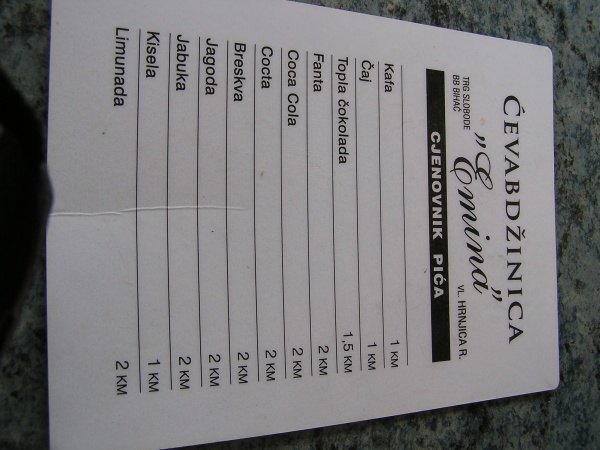 ĆEVABDŽINICA
„Emina”
TRG SLOBODE
BB BIHAĆ
VL. HRNJICA R.
CJENOVNIK PIĆA
Kafa 1 KM
Čaj 1 KM
Topla čokolada 1,5 KM
Fanta 2 KM
Coca Cola 2 KM
Cocta 2 KM
Breskva 2 KM
Jagoda 2 KM
Jabuka 2 KM
Kisela 1 KM
Limunada 2 KM